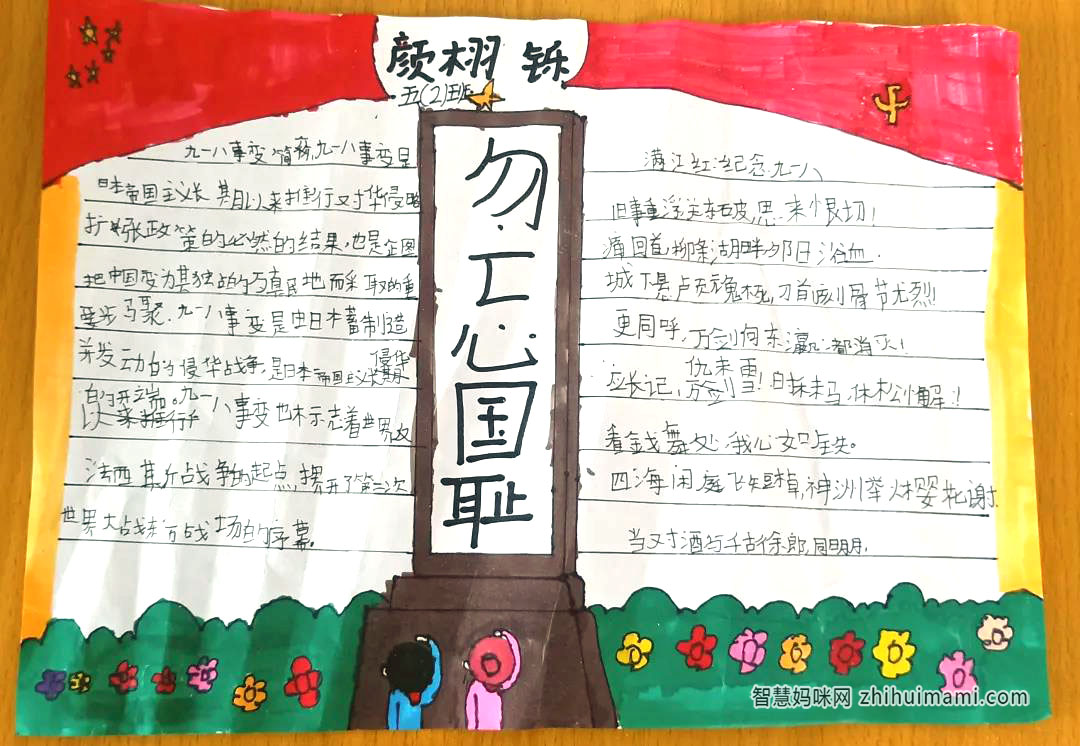 颜栩铄
五(2)班
勿忘国耻
九一八事变简称,九一八事变是
日本帝国主义长期以来推行对华侵略
扩张政策的必然的结果,也是企图
把中国变为其独占的殖民地而采取的重
要步骤.九一八事变是由日本蓄制造
并发动的侵华战争,是日本帝国主义长期侵华
的开端。九一八事变也标示志着世界反
以来推行
法西斯战争的起点,揭开了第二次
世界大战东方战场的序幕。
满江红·纪念九一八
旧事重浮,关东破,思来恨切!
痛回首,柳条湖畔,那日浴血.
城下悬颅
骨节尤烈!
更同呼,万剑向东瀛,都消灭!
仇未雪!
应长记,
休松懈!
看金戈舞处,我心如铁。
四海闲庭飞
神洲举
樱花谢.
当对酒与千古徐郎,同明月.
智慧妈咪网 zhihuimami.com